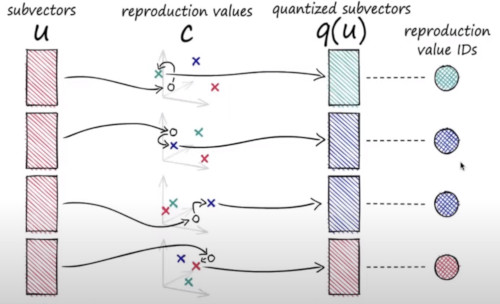 subvectors
u
reproduction values
c
quantized subvectors
q(u)
reproduction
value IDs